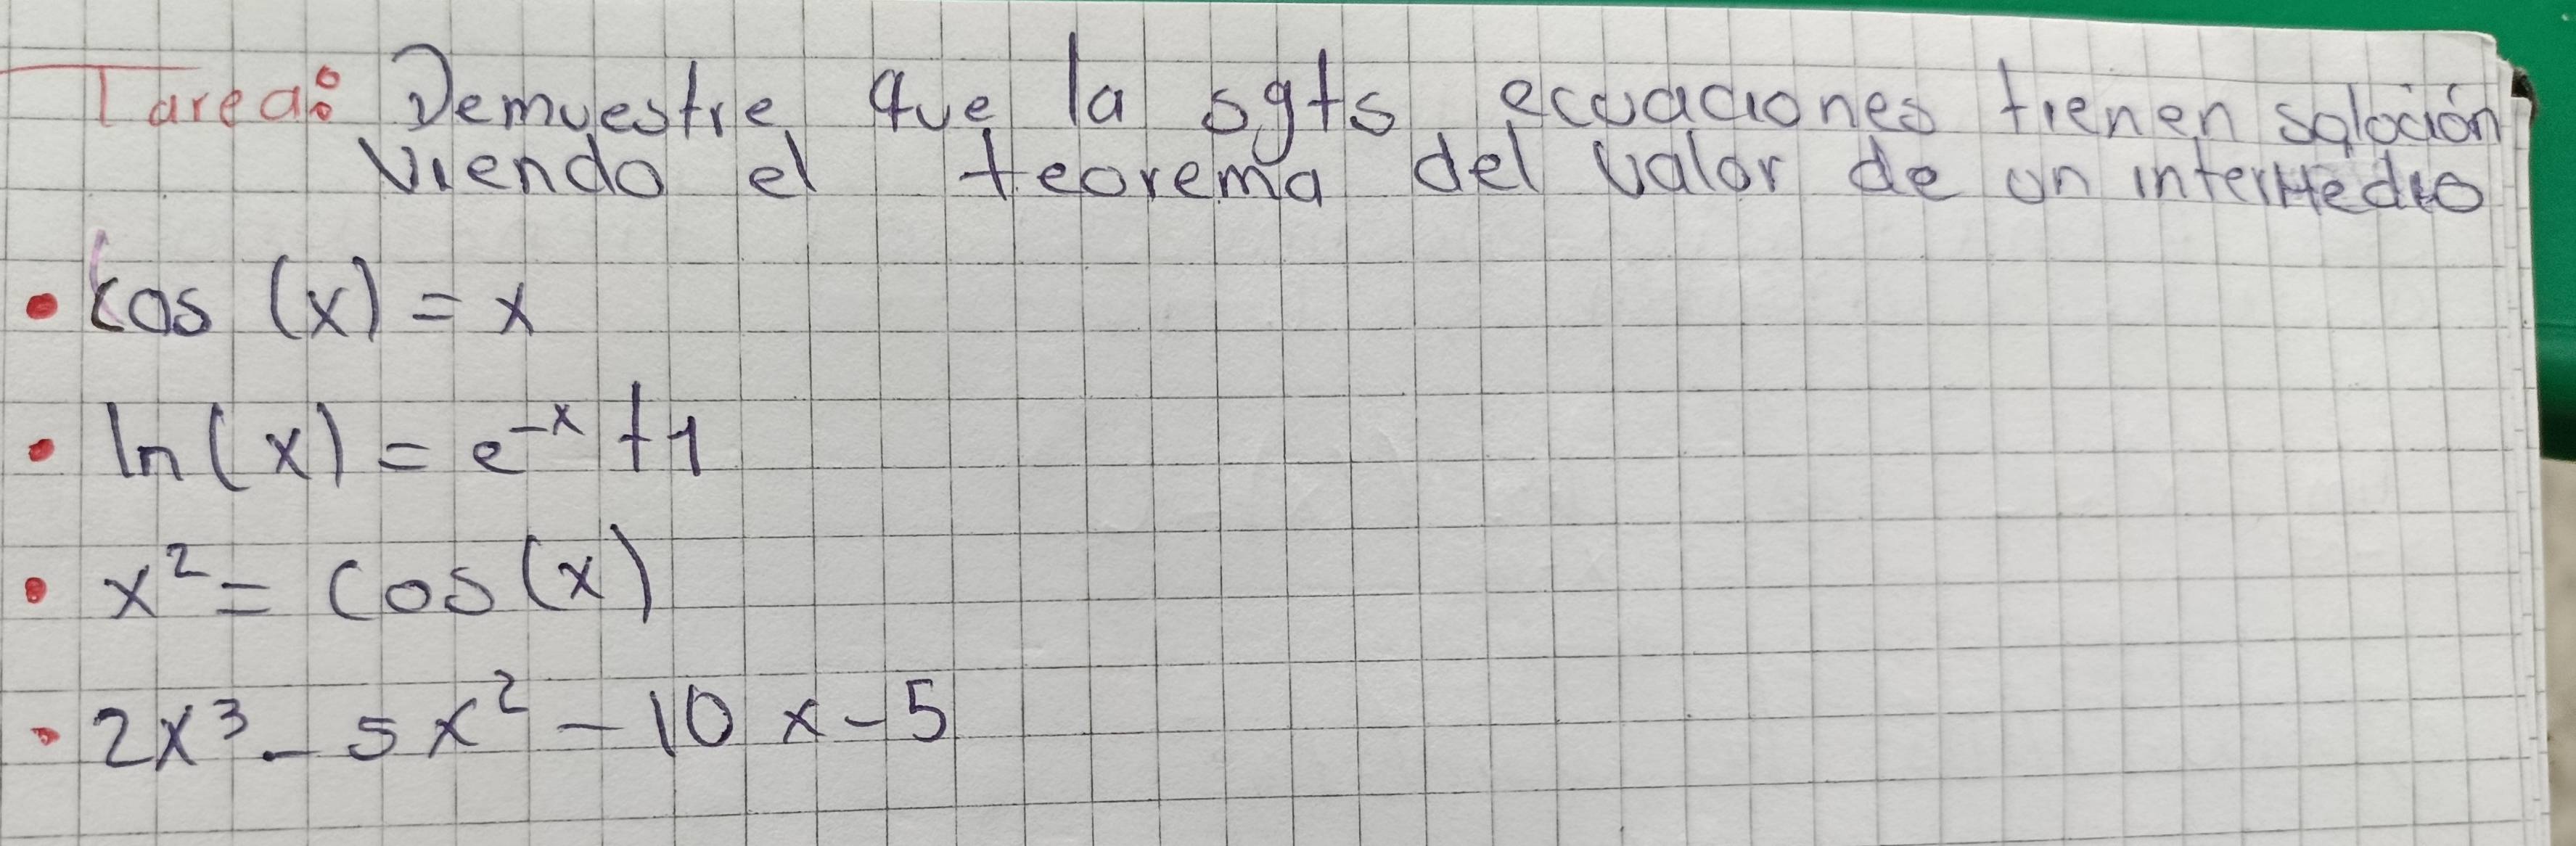 Tarea: Demuestre que la sgts ecuaciones tienen saloción
viendo el teorema del valor de un intermedio
• cos (x) = x
• ln(x) = e^-x +1
• x² = cos(x)
• 2x³ - 5x² - 10x - 5